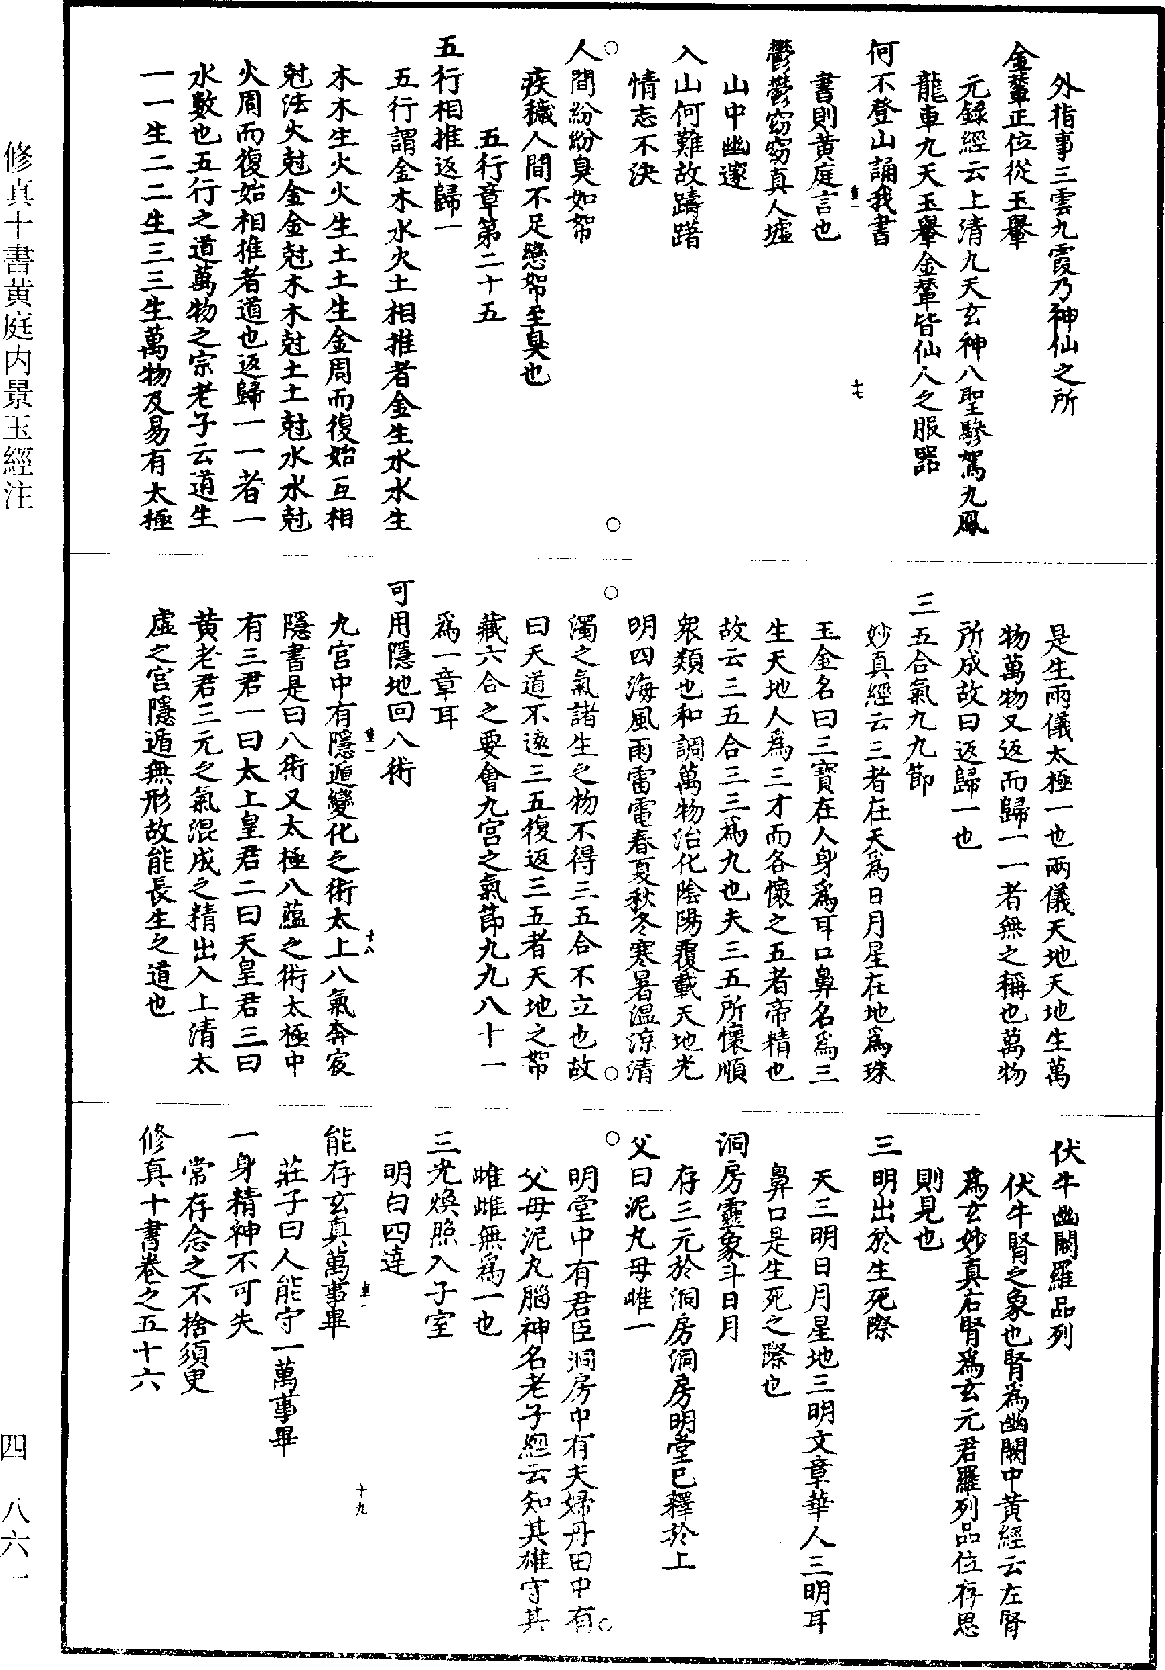 外指事三雲九霞乃神仙之所
金輦正位從玉轝
元錄經云上清九天玄神八聖驂駕九鳳
龍車九天玉轝金輦皆仙人之服器
何不登山誦我書
書則黃庭言也
鬱鬱窈窈真人墟
山中幽邃
入山何難故躊躇
情志不決
人間紛紛臭如帤
疾穢人間不足戀帤至臭也
五行章第二十五
五行相推返歸一
五行謂金木水火土相推者金生水水生
木木生火火生土土生金周而復始互相
尅法火尅金金尅木木尅土土尅水水尅
火周而復始相推者道也返歸一一者一
水數也五行之道萬物之宗老子云道生
一一生二二生三三生萬物及易有太極
七
是生兩儀太極一也兩儀天地天地生萬
物萬物又返而歸一一者無之稱也萬物
所成故曰返歸一也
三五合氣九九節
妙真經云三者在天爲日月星在地爲珠
玉金名曰三寶在人身爲耳口鼻名爲三
生天地人爲三才而各懷之五者帝精也
故云三五合三三爲九也夫三五所懷順
衆類也和調萬物治化陰陽覆載天地光
明四海風雨雷電春夏秋冬寒暑溫涼清
濁之氣諸生之物不得三五合不立也故
曰天道不遠三五復返三五者天地之帤
藏六合之要會九宮之氣節九九八十一
爲一章耳
可用隱地回八術
九宮中有隱遁變化之術太上八氣奔宸
隱書是曰八術又太極八蘊之術太極中
有三君一曰太上皇君二曰天皇君三曰
黃老君三元之氣混成之精出入上清太
虛之宮隱遁無形故能長生之道也
十八
伏牛幽闕羅品列
伏牛腎之象也腎爲幽闕中黃經云左腎
爲玄妙真右腎爲玄元君羅列品位存思
則見也
三明出於生死際
天三明日月星地三明文章華人三明耳
鼻口是生死之際也
洞房靈象斗日月
存三元於洞房洞房明堂已釋於上
父曰泥丸母雌一
明堂中有君臣洞房中有夫婦丹田中有
父母泥丸腦神名老子經云知其雄守其
雌雌無爲一也
三光煥照入子室
明白四達
能存玄真萬事畢
莊子曰人能守一萬事畢
一身精神不可失
常存念之不捨須臾
修真十書卷之五十六
十九
修真十書黃庭內景玉經注
四 八六一